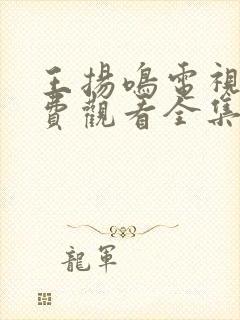 王揚鳴電視
費觀看全集
龍軍